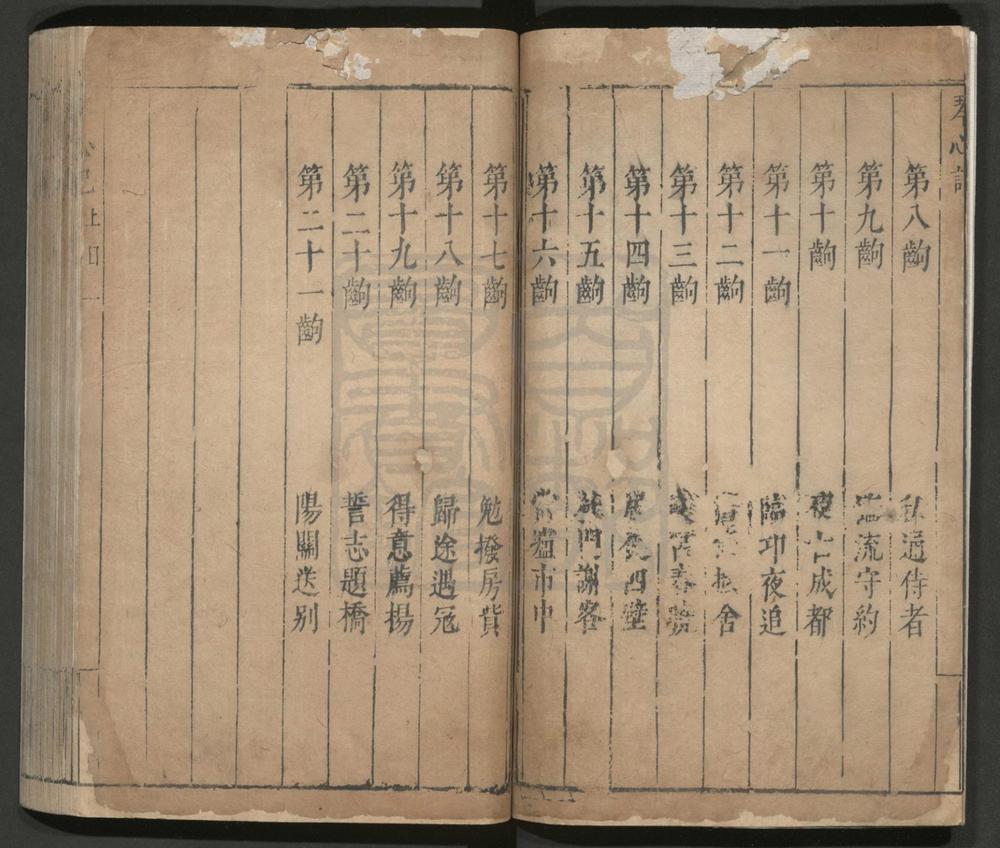 琴心記
第八齣 私通侍者
第九齣 流守約
第十齣 夜亡成都
第十一齣 臨邛夜追
第十二齣 舍
第十三齣
第十四齣 四壁
第十五齣 門謝客
第十六齣 當壚市中
第十七齣 勉撥房貲
第十八齣 歸途遇寇
第十九齣 得意薦揚
第二十齣 誓志題橋
第二十一齣 陽關送别